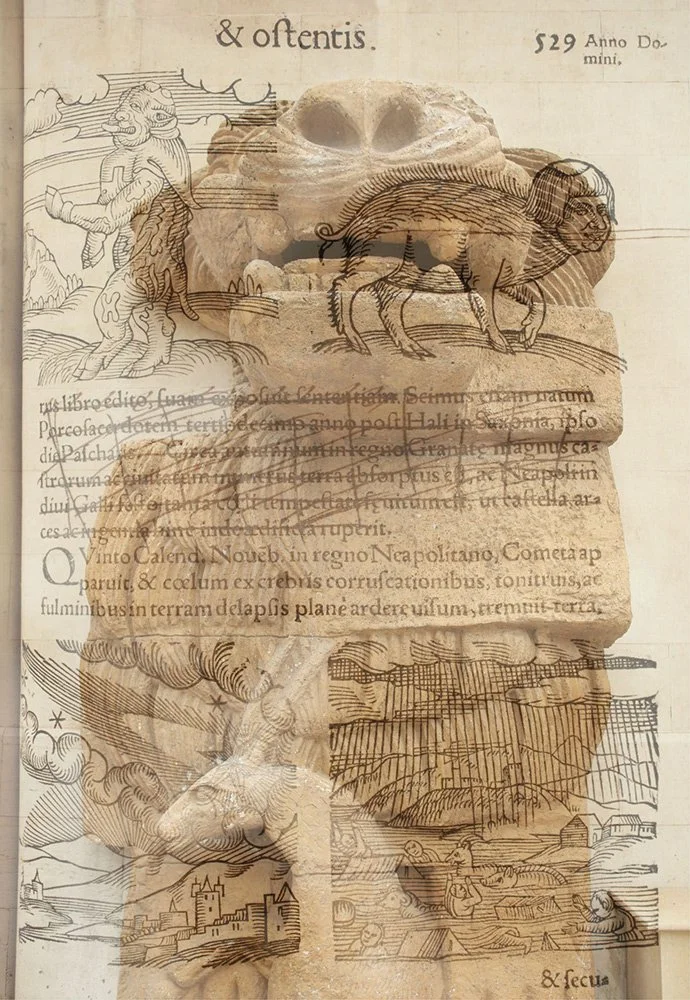 & oſtentis.
529 Anno Do-
mini.
rus libro edito, ſuam expoſuit ſententiam. Scimus etiam natum
Porcoſacerdotem tertio decimo anno poſt Hali in Saxonia, ipſo
die Paſchatis. Circa autumnum in regno Granatę magnus ca-
ſtrorum ac ciuitatum numerus terra abſorptus eſt, ac Neapoli in
diui Galli feſto tanta cœli tempeſtate ſęuitum eſt, ut caſtella, ar-
ces ac ingentia
QVinto Calend. Noueb. in regno Neapolitano, Cometa ap
paruit, & cœlum ex crebris corruſcationibus, tonitruis, ac
fulminibus in terram delapſis planè ardere uiſum, tremuit terra,
& ſecus